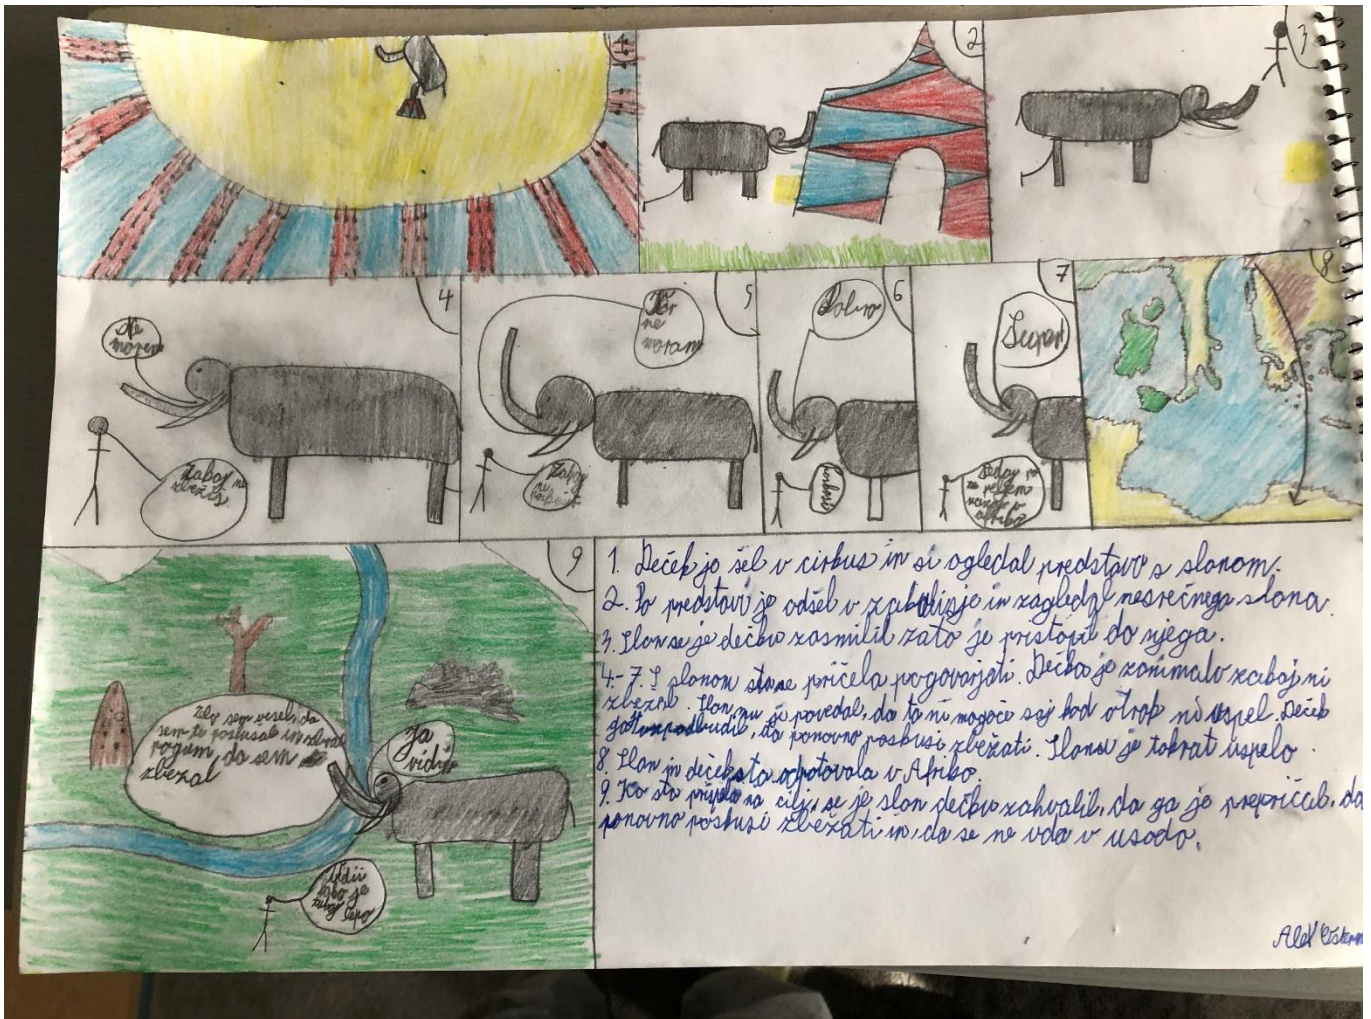 1
2
3
4
Ne
morem
Zakaj ne
zbežiš
5
Ker
ne
moram
Zakaj
ne
6
Dobro
7
Super
Sedaj pa
te peljem
nazaj v
afriko
8
9
Zelo sem vesel, da
sem te poslušal in zbral
pogum, da sem
zbežal
Ja
vidim
Vidiš
kako je
zdaj lepo
1. Deček je šel v cirkus in si ogledal predstavo s slonom.
2. Po predstavi je odšel v zakulisje in zagledal nesrečnega slona.
3. Slon se je dečku zasmilil zato je pristopil do njega.
4.-7. S slonom sta se pričela pogovarjati. Dečka je zanimalo zakaj ni
zbežal. Slon mu je povedal, da to ni mogoče saj kod otrok ni uspel. Deček
ga je vzpodbudil, da ponovno poskusi zbežati. Slonu je tokrat uspelo.
8. Slon in deček sta odpotovala v Afriko.
9. Ko sta prispela na cilj, se je slon dečku zahvalil, da ga je prepričal, da
ponovno poskusi zbežati in, da se ne vda v usodo.
Alex